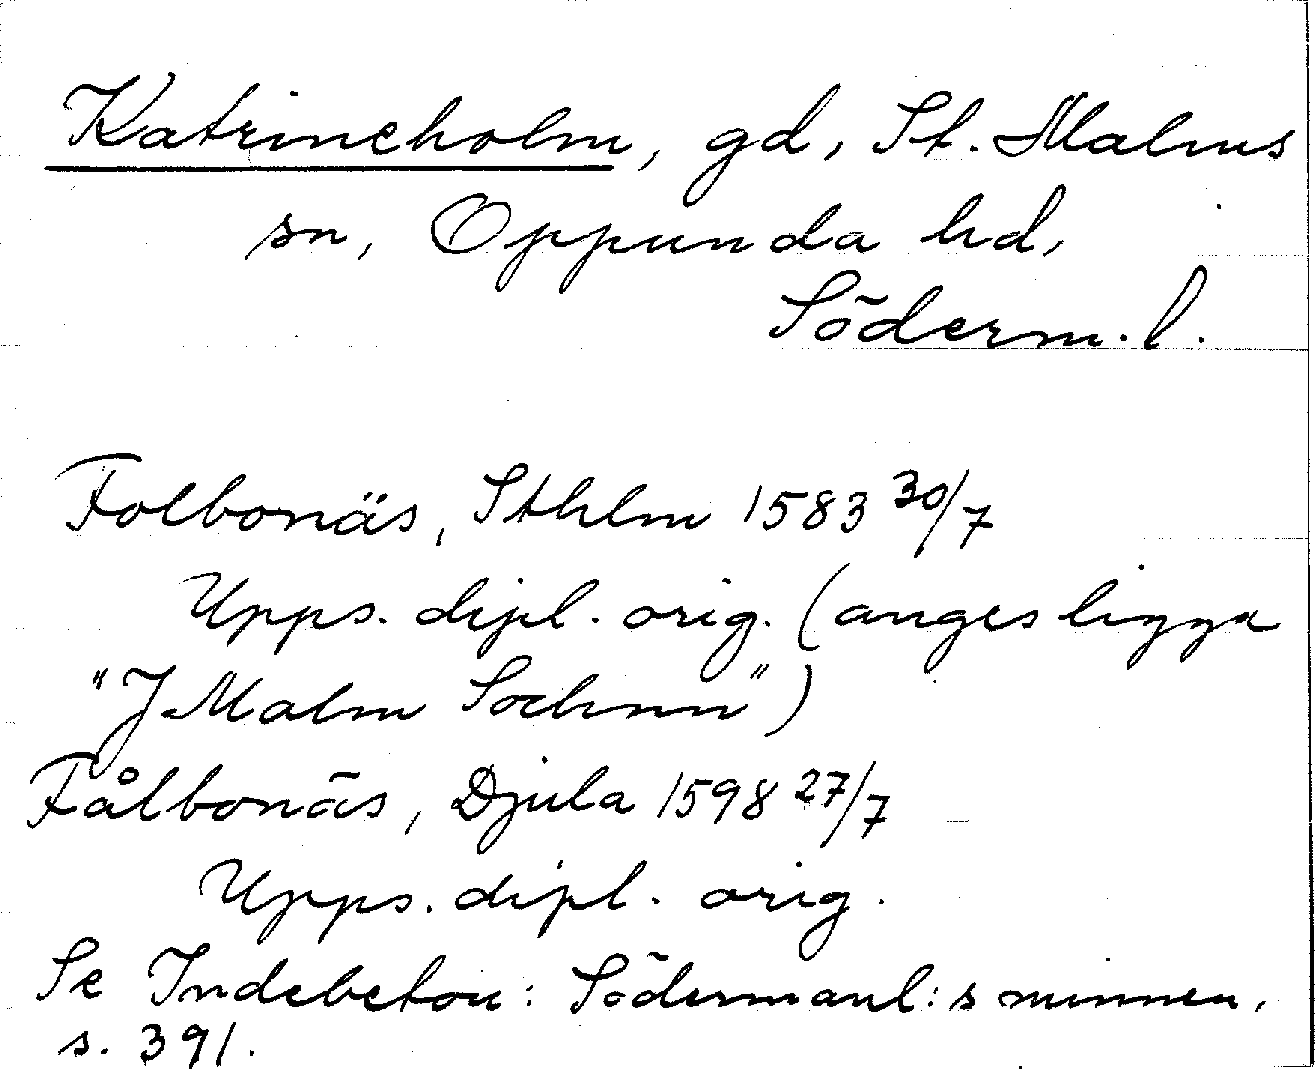 Katrineholm, gd, St. Malms
sn, Oppunda hd,
Söderm. l.
Folbonäs, Sthlm 1583 30/7
Upps. dipl. orig. (anges ligga
"J Malm Sochnn")
Fålbonäs, Djula 1598 27/7
Upps. dipl. orig.
Se Indebetou: Södermanl:s minnen,
s. 391.